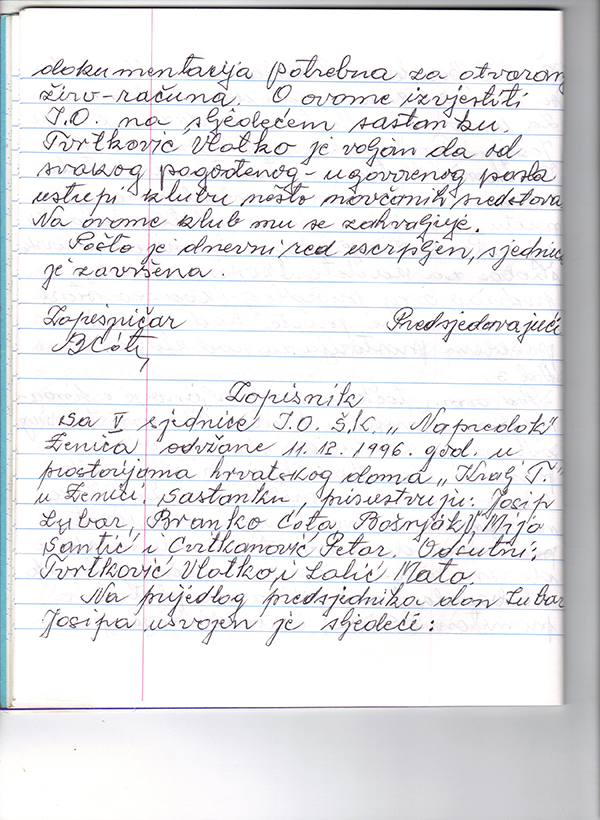 dokumentacija potrebna za otvoranj
žiro-računa. O ovome izvjestiti
I.O. na sljedećem sastanku.
Tvrtković Vlatko je voljan da od
svakog pogođenog-ugovorenog posla
ustupi klubu nešto novčanih sredstava
Na ovome klub mu se zahvaljuje.
Pošto je dnevni red escrpljen, sjednica
je završena.
Zapisničar Predsjedavajući
B Cota
Zapisnik
sa V sjednice I.O. Š.K. „Napredak"
Zenica održane 11.12.1996. god. u
prostorijama hrvatskog doma „Kralj T."
u Zenici. Sastanku prisustvuju: Josip
Lubar, Branko Cota Bošnjak Mijo
Santić i Cvitkanović Petar. Odsutni:
Tvrtković Vlatko i Lalić Mato
Na prijedlog predsjednika don Lubar
Josipa usvojen je sljedeći: